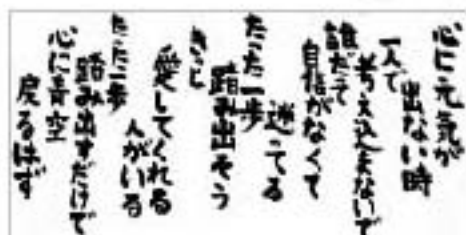 心に元気が
出ない時
一人で
考え込まないで
誰だって
自信がなくて
迷ってる
たった一歩
踏み出そう
きっと
愛してくれる
人がいる
たった一歩
踏み出すだけで
心に青空
戻るはず